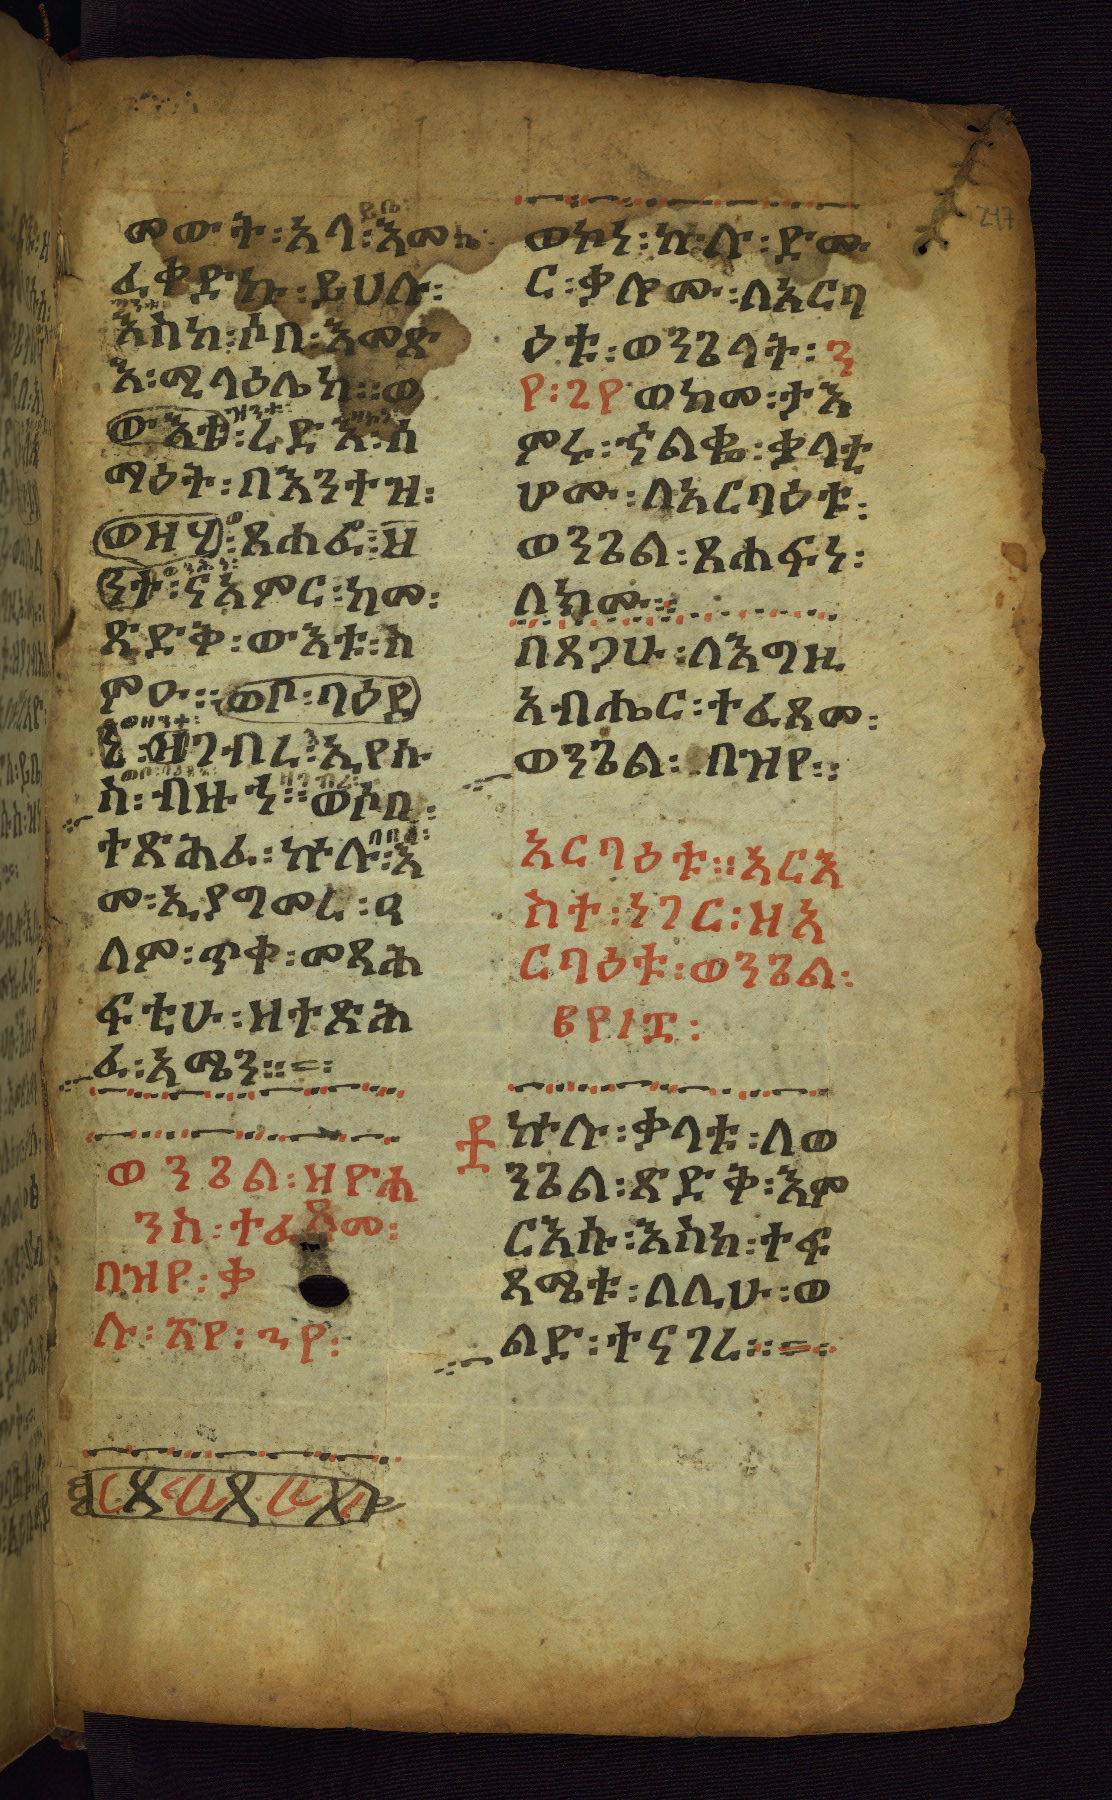 መውት፡አላ፡እመኬ፡
ፈቀድኩ፡ይሀሉ፡
እስከ፡ሶበ፡እመጽ
እ፡ሚላዕሌከ፡፡ወ
ውእቱ፡ረድእ፡ስ
ማዕት፡በእንተዝ፡
ወዝሂ፡ጸሐፈ፡ዝ
ንተ፡ናአምር፡ከመ፡
ጽድቅ፡ውእቱ፡ስ
ምዑ፡፡ወቦ፡ባዕደ
ኒ፡ዘገብረ፡ኢየሱ
ስ፡ብዙኅ፡፡ወሶበ፡
ተጽሕፈ፡ኵሉ፡እ
መ፡ኢያግመረ፡ዓ
ለም፡ጥቀ፡መጻሕ
ፍቲሁ፡ዘተጽሕ
ፈ፡አሜን፡፡=፡
ወንጌል፡ዘዮሐ
ንስ፡ተፈጸመ፡
በዝየ፡ቃ
ሉ፡
ወኮነ፡ኵሉ፡ድሙ
ር፡ቃሎሙ፡ለአርባ
ዕቱ፡ወንጌላት፡
ወከመ፡ታእ
ምሩ፡ኍልቈ፡ቃላቲ
ሆሙ፡ለአርባዕቱ፡
ወንጌል፡ጸሐፍነ፡
ለክሙ፡፡
በጸጋሁ፡ለእግዚ
አብሔር፡ተፈጸመ፡
ወንጌል፡በዝየ፡፡
አርባዕቱ፡፡አርእ
ስተ፡ነገር፡ዘአ
ርባዕቱ፡ወንጌል፡
፪፻፲፰፡
ኵሉ፡ቃላቲ፡ለወ
ንጌል፡ጽድቅ፡እም
ርእሱ፡እስከ፡ተፍ
ጻሜቱ፡ለሊሁ፡ወ
ልድ፡ተናገረ፡፡=፡
247